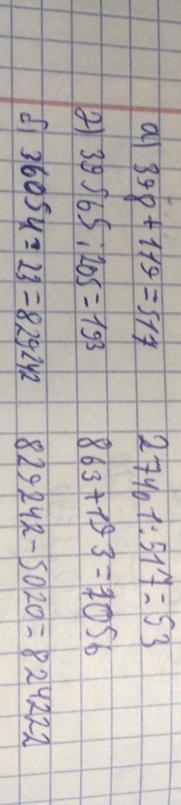 а) 398 + 119 = 517 27401 : 517 = 53
2) 39565 : 205 = 193 863 + 193 = 1056
б) 36054 = 23 = 829242 829242 - 5020 = 824222